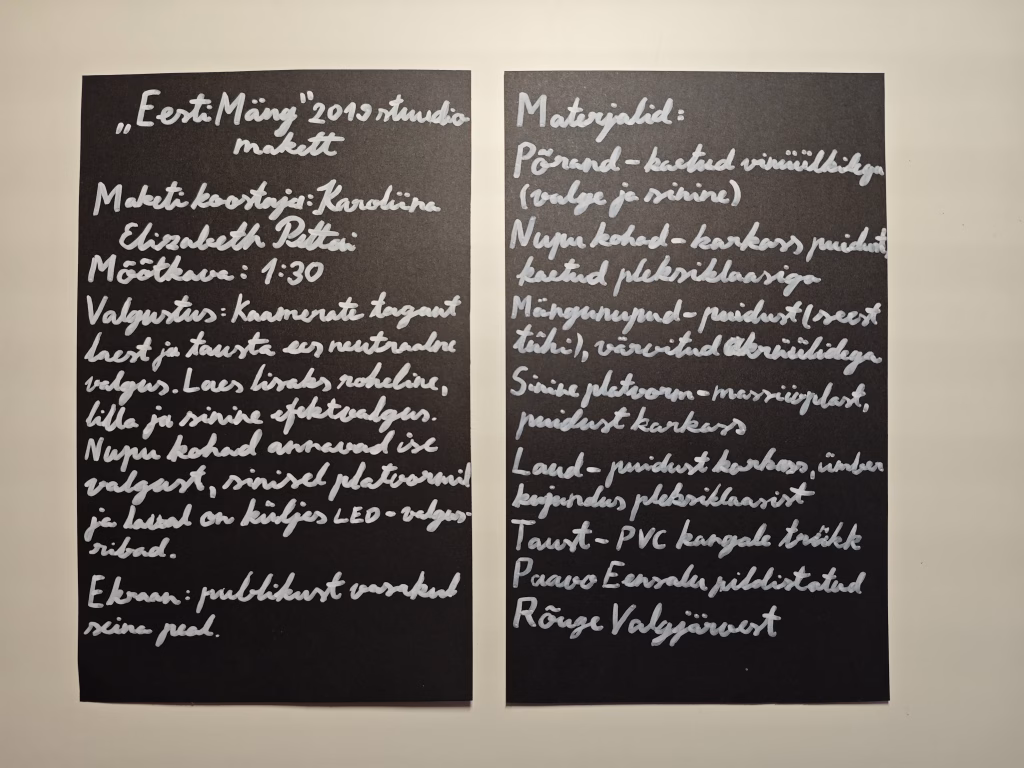 „Eesti Mäng" 2019 stuudio
makett
Maketi koostaja: Karoliina
Elizabeth Pettai
Mõõtkava: 1:30
Valgustus: Kaamerate tagant
laest ja tausta ees neutraalne
valgus. Laes lisaks roheline,
lilla ja sinine efektvalgus.
Nupu kohad annavad ise
valgust, sinisel platvormil
ja laual on küljes LED-valgus-
ribad.
Ekraan: publikust vasakul
seina peal.
Materjalid:
Põrand - kaetud vinüülkilega
(valge ja sinine)
Nupu kohad - karkass puidust,
kaetud pleksiklaasiga
Mängunupud - puidust (seest
tühi), värvitud akrüülidega
Sinine platvorm - massiivplast,
puidust karkass
Laud - puidust karkass, ümber
kujundus pleksiklaasist
Taust - PVC kangale trükk
Paavo Eensalu pildistatud
Rõuge Valgjärvest